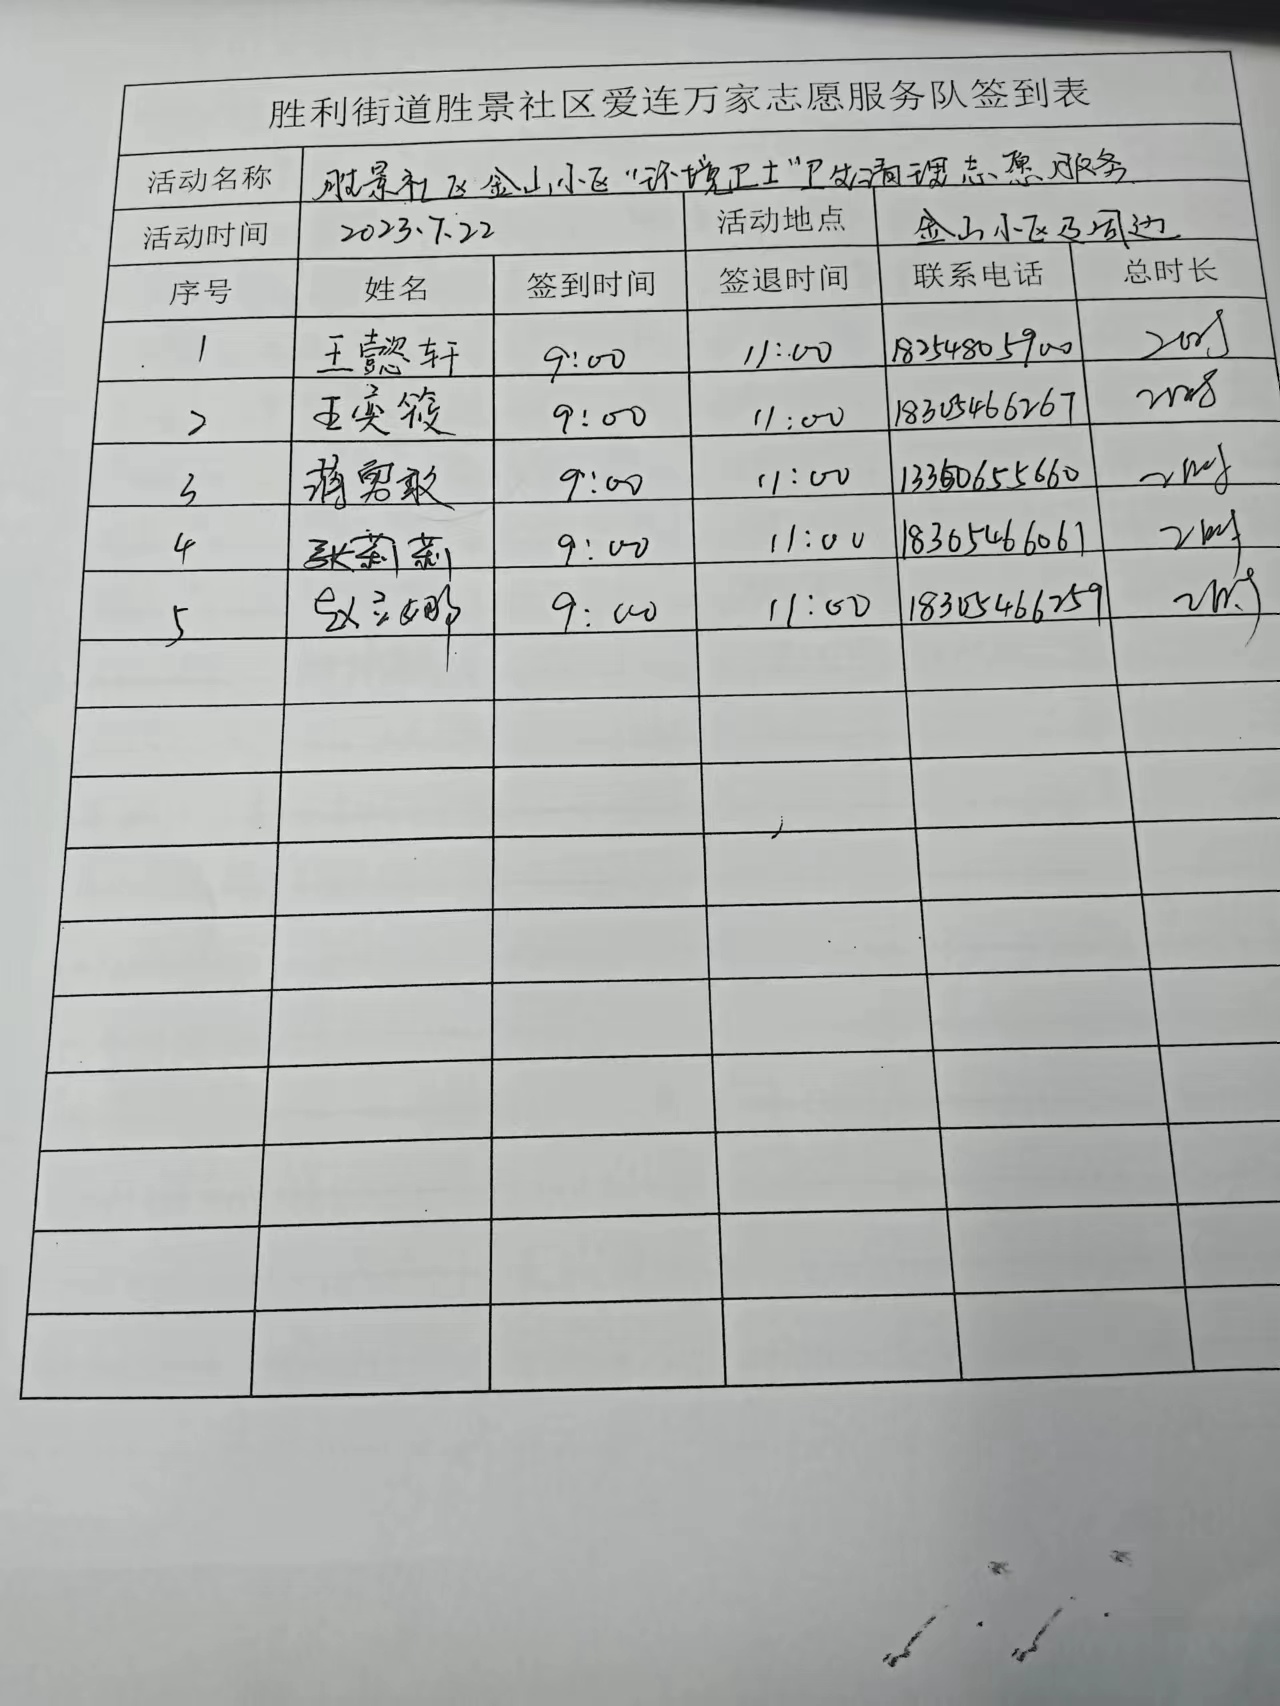 胜利街道胜景社区爱连万家志愿服务队签到表
活动名称 胜景社区金山小区“环境卫士”卫生清理志愿服务
活动时间 2023.7.22 活动地点 金山小区及周边
序号 姓名 签到时间 签退时间 联系电话 总时长
1 王懿轩 9:00 11:00 18254805900 2小时
2 王奕筱 9:00 11:00 18305466267 2小时
3 蒋勇敢 9:00 11:00 13360655660 2小时
4 张莉莉 9:00 11:00 18305466061 2小时
5 赵立娜 9:00 11:00 18305466259 2小时